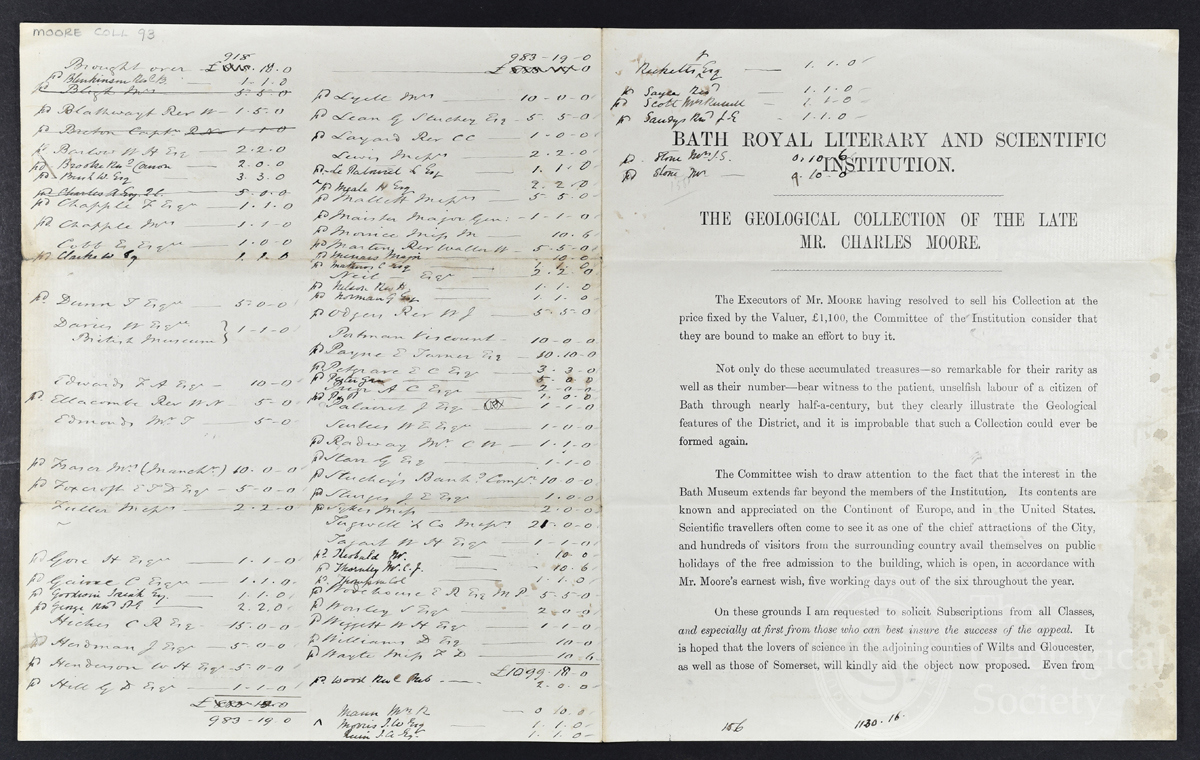 MOORE COLL 93
918
Brought over £ 18.0
pd Blenkinson Rev B. — 1-1-0
pd Bligh Mrs — 5-5-0
pd Blathwayt Rev W - 1-5-0
pd Breton Capt R.N - 1-1-0
pd Barlow W H Esq — 2.2.0
pd Brooke Revd Canon — 2.0.0
pd Bush W. Esq — 3.3.0
pd Charles Esq — 5.0.0
pd Chapple F Esqr — 1.1.0
pd Chapple Mrs — 1-1-0
Cobb E Esqr — 1.0.0
pd Clarke W Esq 1.1.0
pd Dunn T Esqr — 5-0-0
Davies W Esqre } 1-1-0
British Museum
Edwards F A Esqr — 10-0
pd Ellacombe Rev W N — 5-0
Edmonds Mr T — 5-0
pd Fraser Mrs (Manchr) 10.0-0
pd Foxcroft E T D Esqr — 5-0-0
Fuller Misses — 2.2.0
pd Gore H Esqr — 1-1-0
pd Gairoc C Esqr — 1.1.0
pd Goodwin Isaiah Esq — 1.1.0
pd George Revd P.E — 2.2.0
Hicks C R Esq — 15-0-0
pd Herdman J Esq — 5-0-0
pd Henderson W H Esqr — 5-0-0
pd Hill G D Esqr — 1-1-0
£
983-19.0
983-19-0
£
pd Lyell Mrs — 10-0-0
pd Lean G Stuckey Esq — 5-5-0
pd Layard Rev CC — 1-0-0
Lewis Misses — 2.2.0
pd Esq — 1.1.0
pd Meale H Esq — 2-2.0
pd Mallett Misses — 5.5.0
pd Maister Major Gen: — 1-1-0
pd Morrice Miss M — 10.6
pd Martin Rev Walter W — 5.5.0
pd Major — 10.0
pd C Esq
Neil — Esqr — 2.2.0
pd Nelson Rev H. — 1.1.0
pd Norman G Esq — 1.1.0
pd Odgers Rev W J — 5-5.0
Portman Viscount — 10-0-0
pd Payne E Turner Esq — 10.10-0
pd Petgrave E C Esq — 3.3-0
5-0.0
A C Esq — 2.0.0
1.0.0
J Esq — 1-1-0
W E Esqr — 1-0-0
pd Radway Mr C W — 1-1.0
pd Starr G Esq — 1-1-0
pd Stuckeys Bankg Compy 10.0.0
pd Sturges J E Esq — 1.0.0
pd Sykes Miss — 2.0.0
Tugwell & Co Messrs 21.0.0
W H Esq — 1-1-0
pd Theobald W. — 10.0
pd Thornley W. C. J. — 10.6
pd Thompson Col — 1.1.0
pd Wodehouse E R Esq M P — 5-5-0
pd Worsley S Esqr — 2-0-0
pd Wiggett W H Esq — 1-1-0
pd Williams D Esq — 10-0
pd Wayte Miss F D — 10.6
£1099-18.0
pd Wood Rev P — 2.0.0
Mann Mrs R — 0 10.0
Morris J.W Esq — 1.1.0
Ruin J. A. Esqr — 1.1.0
pd Ricketts Esq — 1.1.0
pd Sayce Revd — 1.1.0
pd Scott Mrs Russell — 1.1.0
pd Sandys Revd J.E — 1.1.0
BATH ROYAL LITERARY AND SCIENTIFIC
pd Stone Mrs J.S. 0.10.6
INSTITUTION.
pd Stone Mr — 0.10.0
THE GEOLOGICAL COLLECTION OF THE LATE
MR. CHARLES MOORE.
The Executors of Mr. MOORE having resolved to sell his Collection at the
price fixed by the Valuer, £1,100, the Committee of the Institution consider that
they are bound to make an effort to buy it.
Not only do these accumulated treasures—so remarkable for their rarity as
well as their number—bear witness to the patient, unselfish labour of a citizen of
Bath through nearly half-a-century, but they clearly illustrate the Geological
features of the District, and it is improbable that such a Collection could ever be
formed again.
The Committee wish to draw attention to the fact that the interest in the
Bath Museum extends far beyond the members of the Institution. Its contents are
known and appreciated on the Continent of Europe, and in the United States.
Scientific travellers often come to see it as one of the chief attractions of the City,
and hundreds of visitors from the surrounding country avail themselves on public
holidays of the free admission to the building, which is open, in accordance with
Mr. Moore's earnest wish, five working days out of the six throughout the year.
On these grounds I am requested to solicit Subscriptions from all Classes,
and especially at first from those who can best insure the success of the appeal. It
is hoped that the lovers of science in the adjoining counties of Wilts and Gloucester,
as well as those of Somerset, will kindly aid the object now proposed. Even from
156
1130.16.
The Geological Society